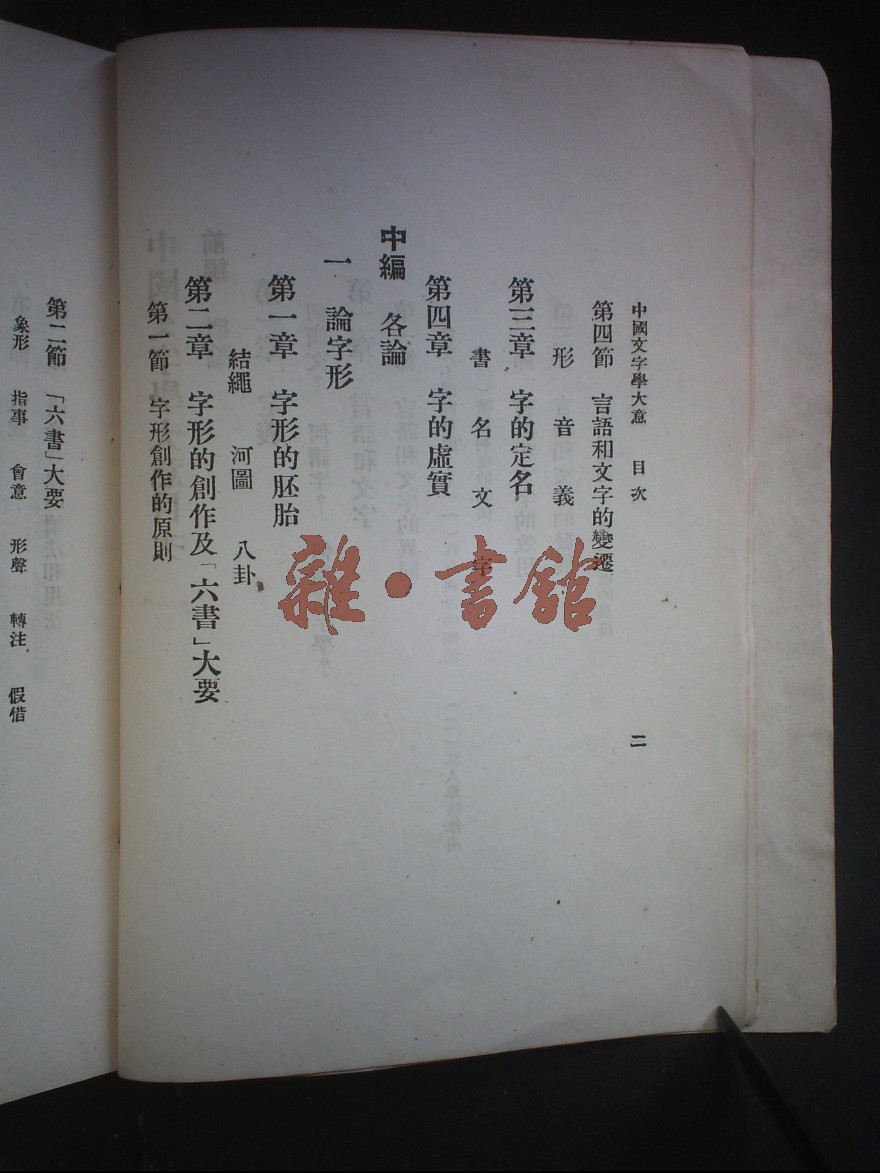 中國文字學大意　目次
二
第四節　言語和文字的變遷
形　音　義
第三章　字的定名
書　名　文　字
第四章　字的虛實
中編　各論
一　論字形
第一章　字形的胚胎
結繩　河圖　八卦
第二章　字形的創作及「六書」大要
第一節　字形創作的原則
第二節　「六書」大要
象形　指事　會意　形聲　轉注　假借
雜·書館